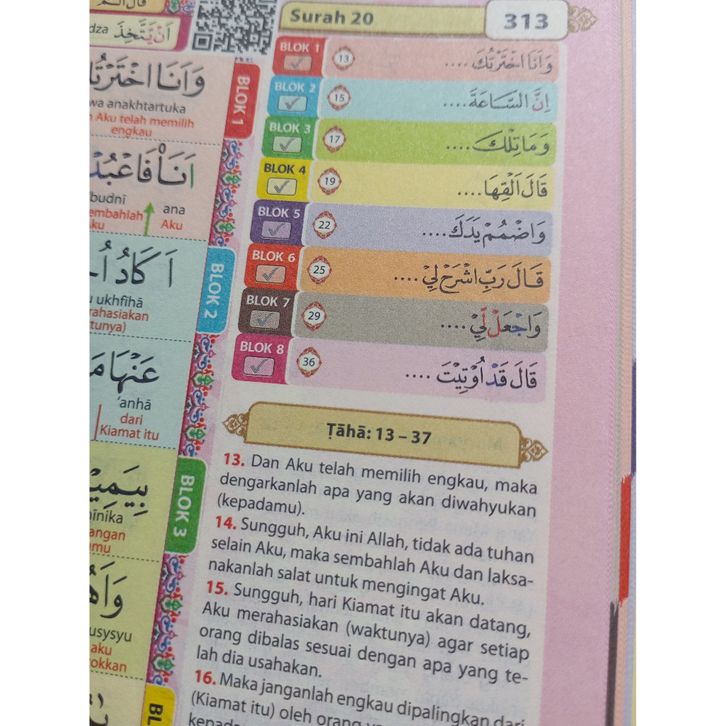 Surah 20
313
BLOK 1 13 وَاَنَا اخْتَرْتُكَ ....
BLOK 2 15 اِنَّ السَّاعَةَ ....
BLOK 3 17 وَمَا تِلْكَ ....
BLOK 4 19 قَالَ اَلْقِهَا ....
BLOK 5 22 وَاضْمُمْ يَدَكَ ....
BLOK 6 25 قَالَ رَبِّ اشْرَحْ لِيْ ....
BLOK 7 29 وَاجْعَلْ لِّيْ ....
BLOK 8 36 قَالَ قَدْ اُوْتِيْتَ ....
Ṭāhā: 13 – 37
13. Dan Aku telah memilih engkau, maka
dengarkanlah apa yang akan diwahyukan
(kepadamu).
14. Sungguh, Aku ini Allah, tidak ada tuhan
selain Aku, maka sembahlah Aku dan laksa-
nakanlah salat untuk mengingat Aku.
15. Sungguh, hari Kiamat itu akan datang,
Aku merahasiakan (waktunya) agar setiap
orang dibalas sesuai dengan apa yang te-
lah dia usahakan.
16. Maka janganlah engkau dipalingkan dari
(Kiamat itu) oleh orang
اَنْ يَّتَّخِذَ
BLOK 1
وَاَنَا اخْتَرْتُكَ
wa anakhtartuka
Aku telah memilih
engkau
اَنَا۠ فَاعْبُدْ
budnī
embahlah
Aku
ana
Aku
BLOK 2
اَكَادُ اُ
ukhfīhā
rahasiakan
tunya)
عَنْهَا مَ
'anhā
dari
Kiamat itu
BLOK 3
بِيَمِيْ
inika
angan
mu
وَاَهُ
usysyu
aku
rokkan
BL